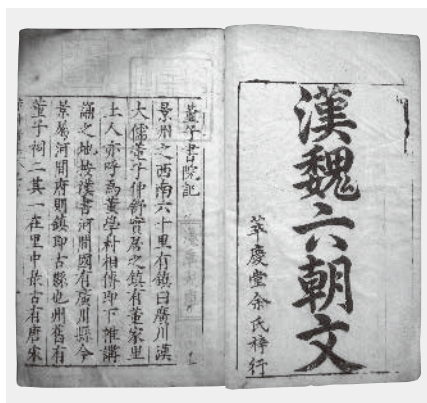 漢魏六朝文
萃慶堂余氏梓行
董子書院記
景州之西南六十里有鎮曰廣川漢
大儒董子仲舒實居之鎮有董家里
土人亦呼為董學村相傳即下帷講
誦之地按漢書河間國有廣川縣今
景屬河間府則鎮即古縣也州舊有
董子祠二其一在里中最古有唐宋